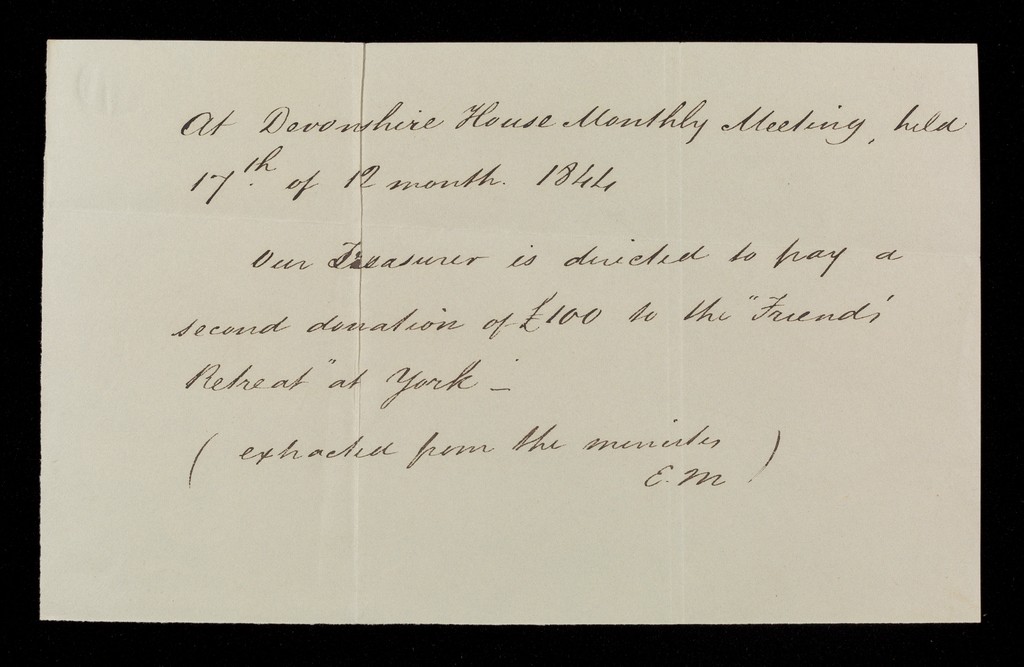 At Devonshire House Monthly Meeting, held
17th. of 12 month. 1844
Our Treasurer is directed to pay a
second donation of £100 to the "Friends'
Retreat" at York -
( extracted from the minutes )
E. M